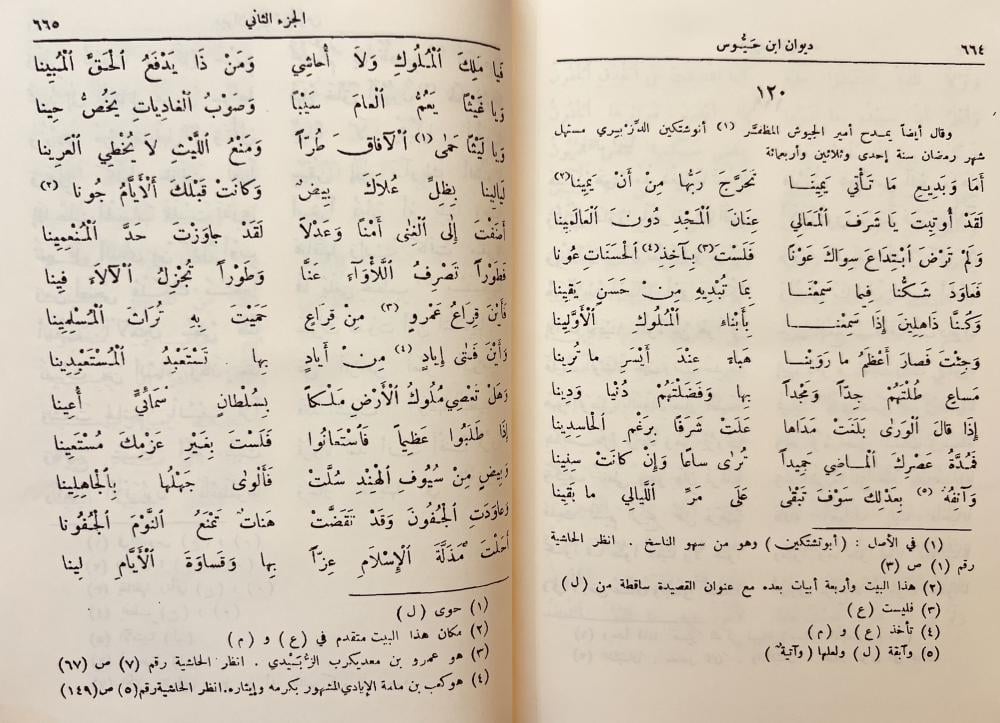 ٦٦٤
ديوان ابن حَيّوس
١٢٠
وقال أيضاً يمدح أمير الجيوش المظفّر (١) أنوشتكين الدِّزْبِري مستهل
شهر رمضان سنة إحدى وثلاثين وأربعمائة
أَمَا وَبَدِيعِ مَا تَأْتِي يَمِينَا تَحَرَّجَ رَبُّها مِنْ أَنْ يَمِينَا (٢)
لَقَدْ أُوتِيتَ يَا شَرَفَ الْمَعَالِي عِنَانَ الْمَجْدِ دُونَ الْعَالَمِينَا
وَلَمْ تَرْضَ ابْتِدَاعَ سِوَاكَ عَوْناً فَلَسْتَ (٣) بِآخِذِ (٤) الْحَسَنَاتِ عُونَا
فَعَاوَدَ شَكُّنا فِيما سَمِعْنَا بِمَا تُبْدِيهِ مِنْ حَسَنٍ يَقِينَا
وَكُنَّا ذَاهِلِينَ إِذَا سَمِعْنَا بِأَبْنَاءِ الْمُلُوكِ الْأَوَّلِينَا
وَجِئْتَ فَصارَ أَعْظَمُ ما رَوَيْنَا هَباءً عِنْدَ أَيْسَرِ ما تُرِينا
مَساعٍ طُلْتَهُمْ جِدّاً وَمَجْداً بِها وَفَضَلْتَهُمْ دُنْيا وَدِينا
إِذَا قالَ الْوَرَى بَلَغَتْ مَدَاهَا عَلَتْ شَرَفاً بِرَغْمِ الْحَاسِدِينا
فَمُدَّةُ عَصْرِكَ الْمَاضِي حَمِيداً تُرى ساعاً وَإِنْ كانَتْ سِنِينا
وَآنِفَهُ (٥) بِعَدْلِكَ سَوْفَ تَبْقَى عَلَى مَرِّ اللَّيالِي ما بَقِينا
(١) في الأصل : (أبوتشتكين) وهو من سهو الناسخ . انظر الحاشية
رقم (١) ص (٣)
(٢) هذا البيت وأربعة أبيات بعده مع عنوان القصيدة ساقطة من (ل)
(٣) فليست (ع)
(٤) تأخذ (ع) و (م)
(٥) وآبقة (ل) ولعلها (وآتيةٌ)
الجزء الثاني
٦٦٥
فَيا مَلِكَ الْمُلُوكِ وَلا أُحاشِي وَمَنْ ذَا يَدْفَعُ الْحَقَّ الْمُبِينا
وَيا غَيْثاً يَعُمُّ الْعامَ سَيْباً وَصَوْبُ الْغادِياتِ يَخُصُّ حِينا
وَيا لَيْثاً حَمٰى (١) الْآفاقَ طُرّاً وَمَنْعُ اللَّيْثِ لا يُخْطِي الْعَرِينا
لَيالِينا بِظِلِّ عُلاكَ بِيضٌ وَكانَتْ قَبْلَكَ الْأَيّامُ جُونا (٢)
أَضَفْتَ إِلَى الْغِنٰى أَمْناً وَعَدْلاً لَقَدْ جاوَزْتَ حَدَّ الْمُنْعِمِينا
فَطَوْراً تَصْرِفُ اللَّأْوَاءَ عَنَّا وَطَوْراً تُجْزِلُ الْآلاءَ فِينا
فَأَيْنَ قِراعُ عَمْرٍو (٣) مِنْ قِراعٍ حَمَيْتَ بِهِ تُراثَ الْمُسْلِمِينا
وَأَيْنَ فَتٰى إِيادٍ (٤) مِنْ أَيادٍ بِها تَسْتَعْبِدُ الْمُسْتَعْبِدِينا
وَهَلْ تَعْصِي مُلُوكُ الْأَرْضِ مَلْكاً بِسُلْطانٍ سَمائِيٍّ أُعِينا
إِذَا طَلَبُوا عَظِيماً فَاسْتَعانُوا فَلَسْتَ بِغَيْرِ عَزْمِكَ مُسْتَعِينا
وَبِيضٍ مِنْ سُيُوفِ الْهِنْدِ سُلَّتْ فَأَلْوى جَهْلُها بِالْجاهِلِينا
وَعاوَدَتِ الْجُفُونَ وَقَدْ تَقَضَّتْ هَناتٌ تَمْنَعُ النَّوْمَ الْجُفُونا
أَحَلْتَ مَذَلَّةَ الْإِسْلامِ عِزّاً بِها وَقَساوَةَ الْأَيّامِ لِينا
(١) حوى (ل)
(٢) مكان هذا البيت متقدم في (ع) و (م)
(٣) هو عمرو بن معديكرب الزُّبَيْدي . انظر الحاشية رقم (٧) ص (٦٧)
(٤) هو كعب بن مامة الإيادي المشهور بكرمه وإيثاره.انظر الحاشية رقم (٥) ص(١٤٩)